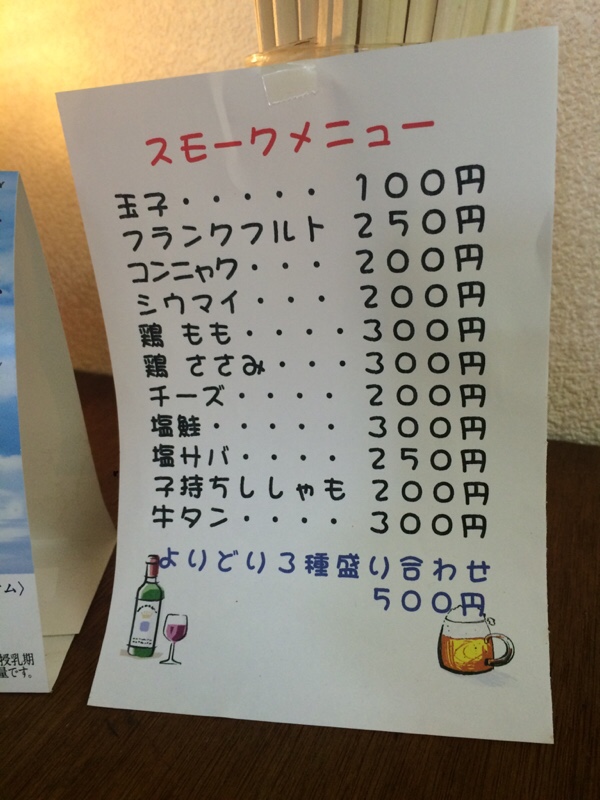 スモークメニュー
玉子・・・・・ 100円
フランクフルト 250円
コンニャク・・・ 200円
シウマイ・・・ 200円
鶏 もも・・・・ 300円
鶏 ささみ・・・ 300円
チーズ・・・・ 200円
塩鮭・・・・・ 300円
塩サバ・・・・ 250円
子持ちししゃも 200円
牛タン・・・・ 300円
よりどり3種盛り合わせ
500円
ム〉
授乳期
量です。